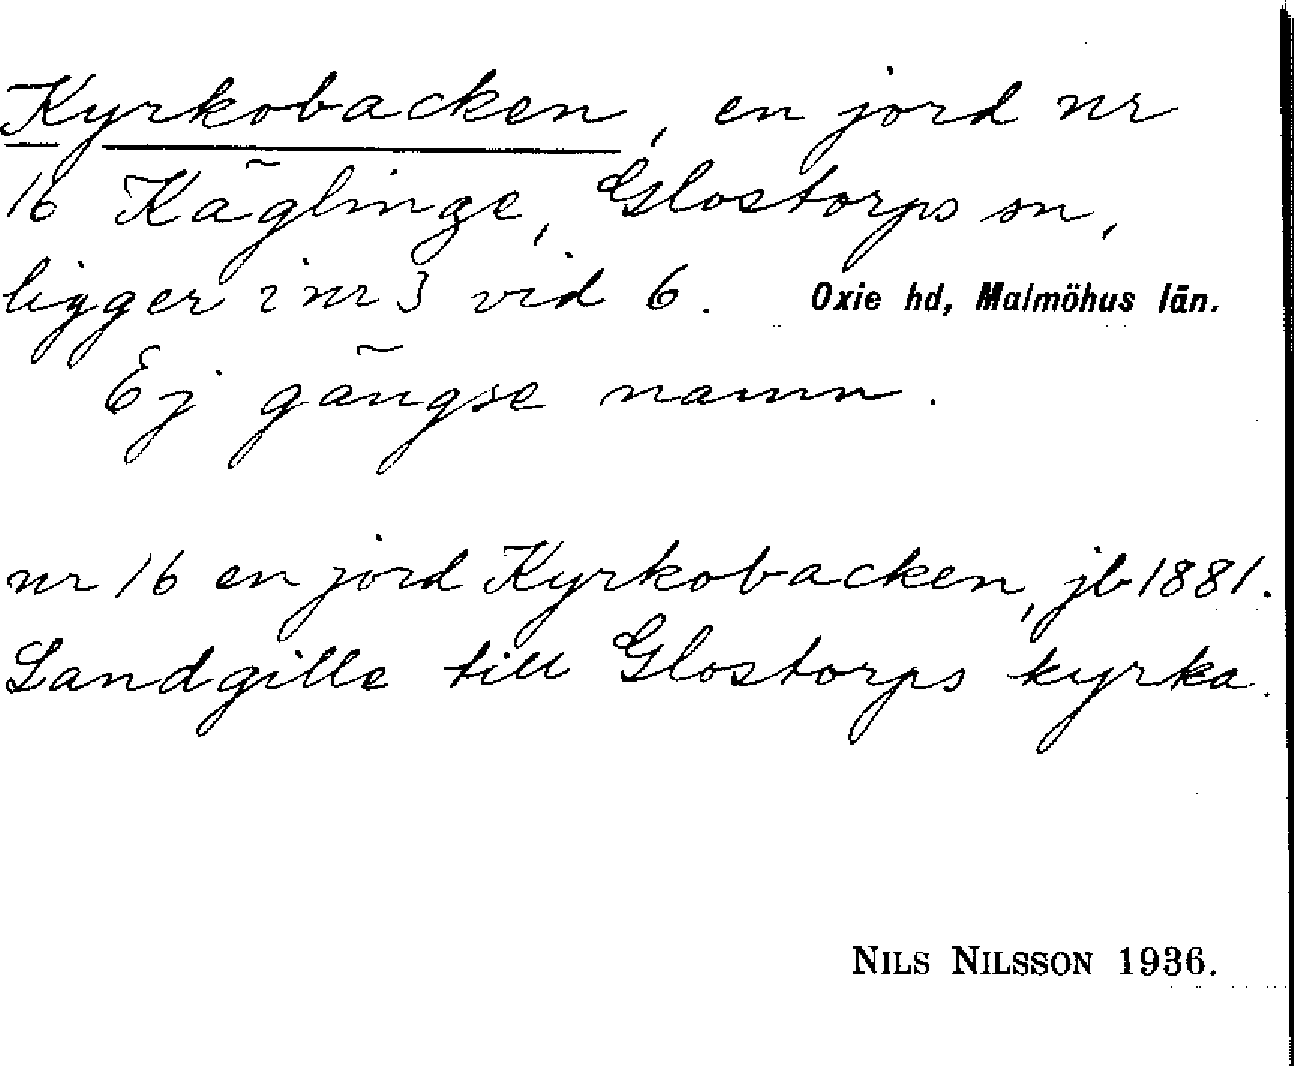 Kyrkobacken, en jord nr
16 Käglinge, Glostorps sn,
ligger i nr 3 vid 6. Oxie hd, Malmöhus län.
Ej gängse namn.
nr 16 en jord Kyrkobacken, jb 1881.
Landgille till Glostorps kyrka.
NILS NILSSON 1936.